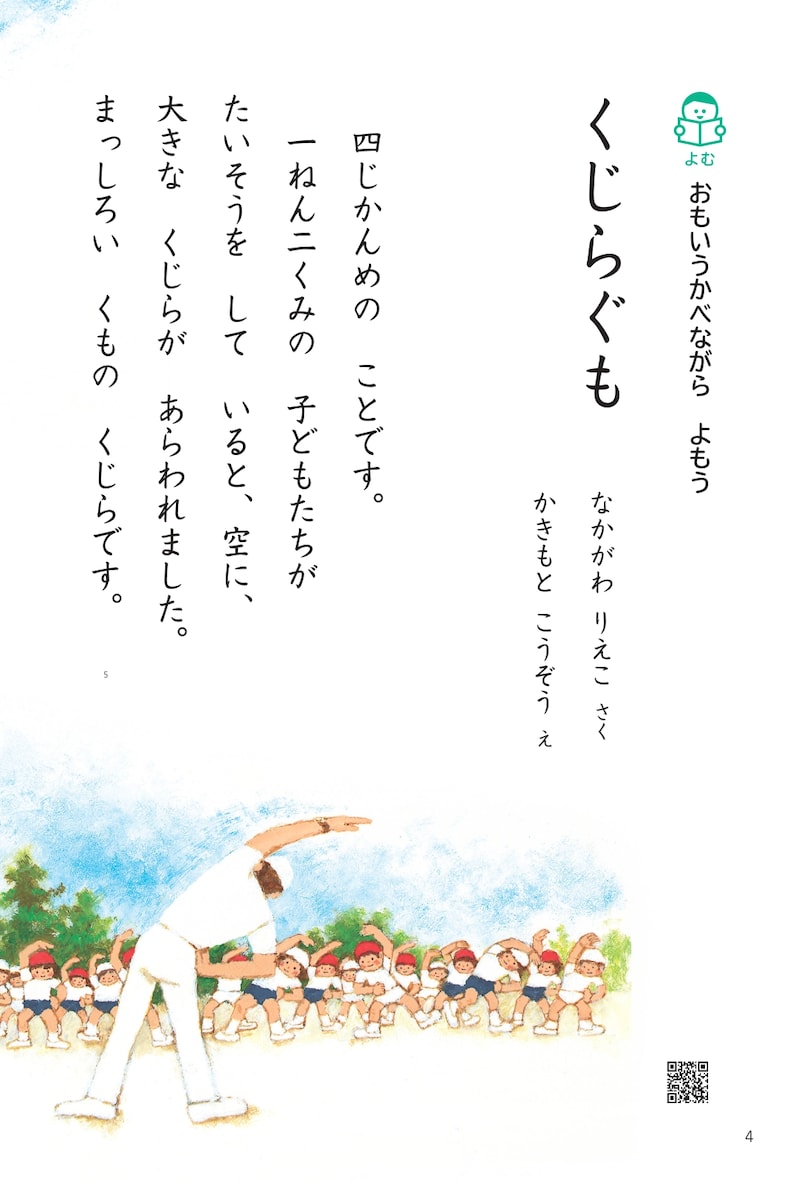 よむ
おもいうかべながら　よもう
くじらぐも
なかがわ　りえこ　さく
かきもと　こうぞう　え
四じかんめの　ことです。
一ねん二くみの　子どもたちが
たいそうを　して　いると、空に、
大きな　くじらが　あらわれました。
まっしろい　くもの　くじらです。
5
4